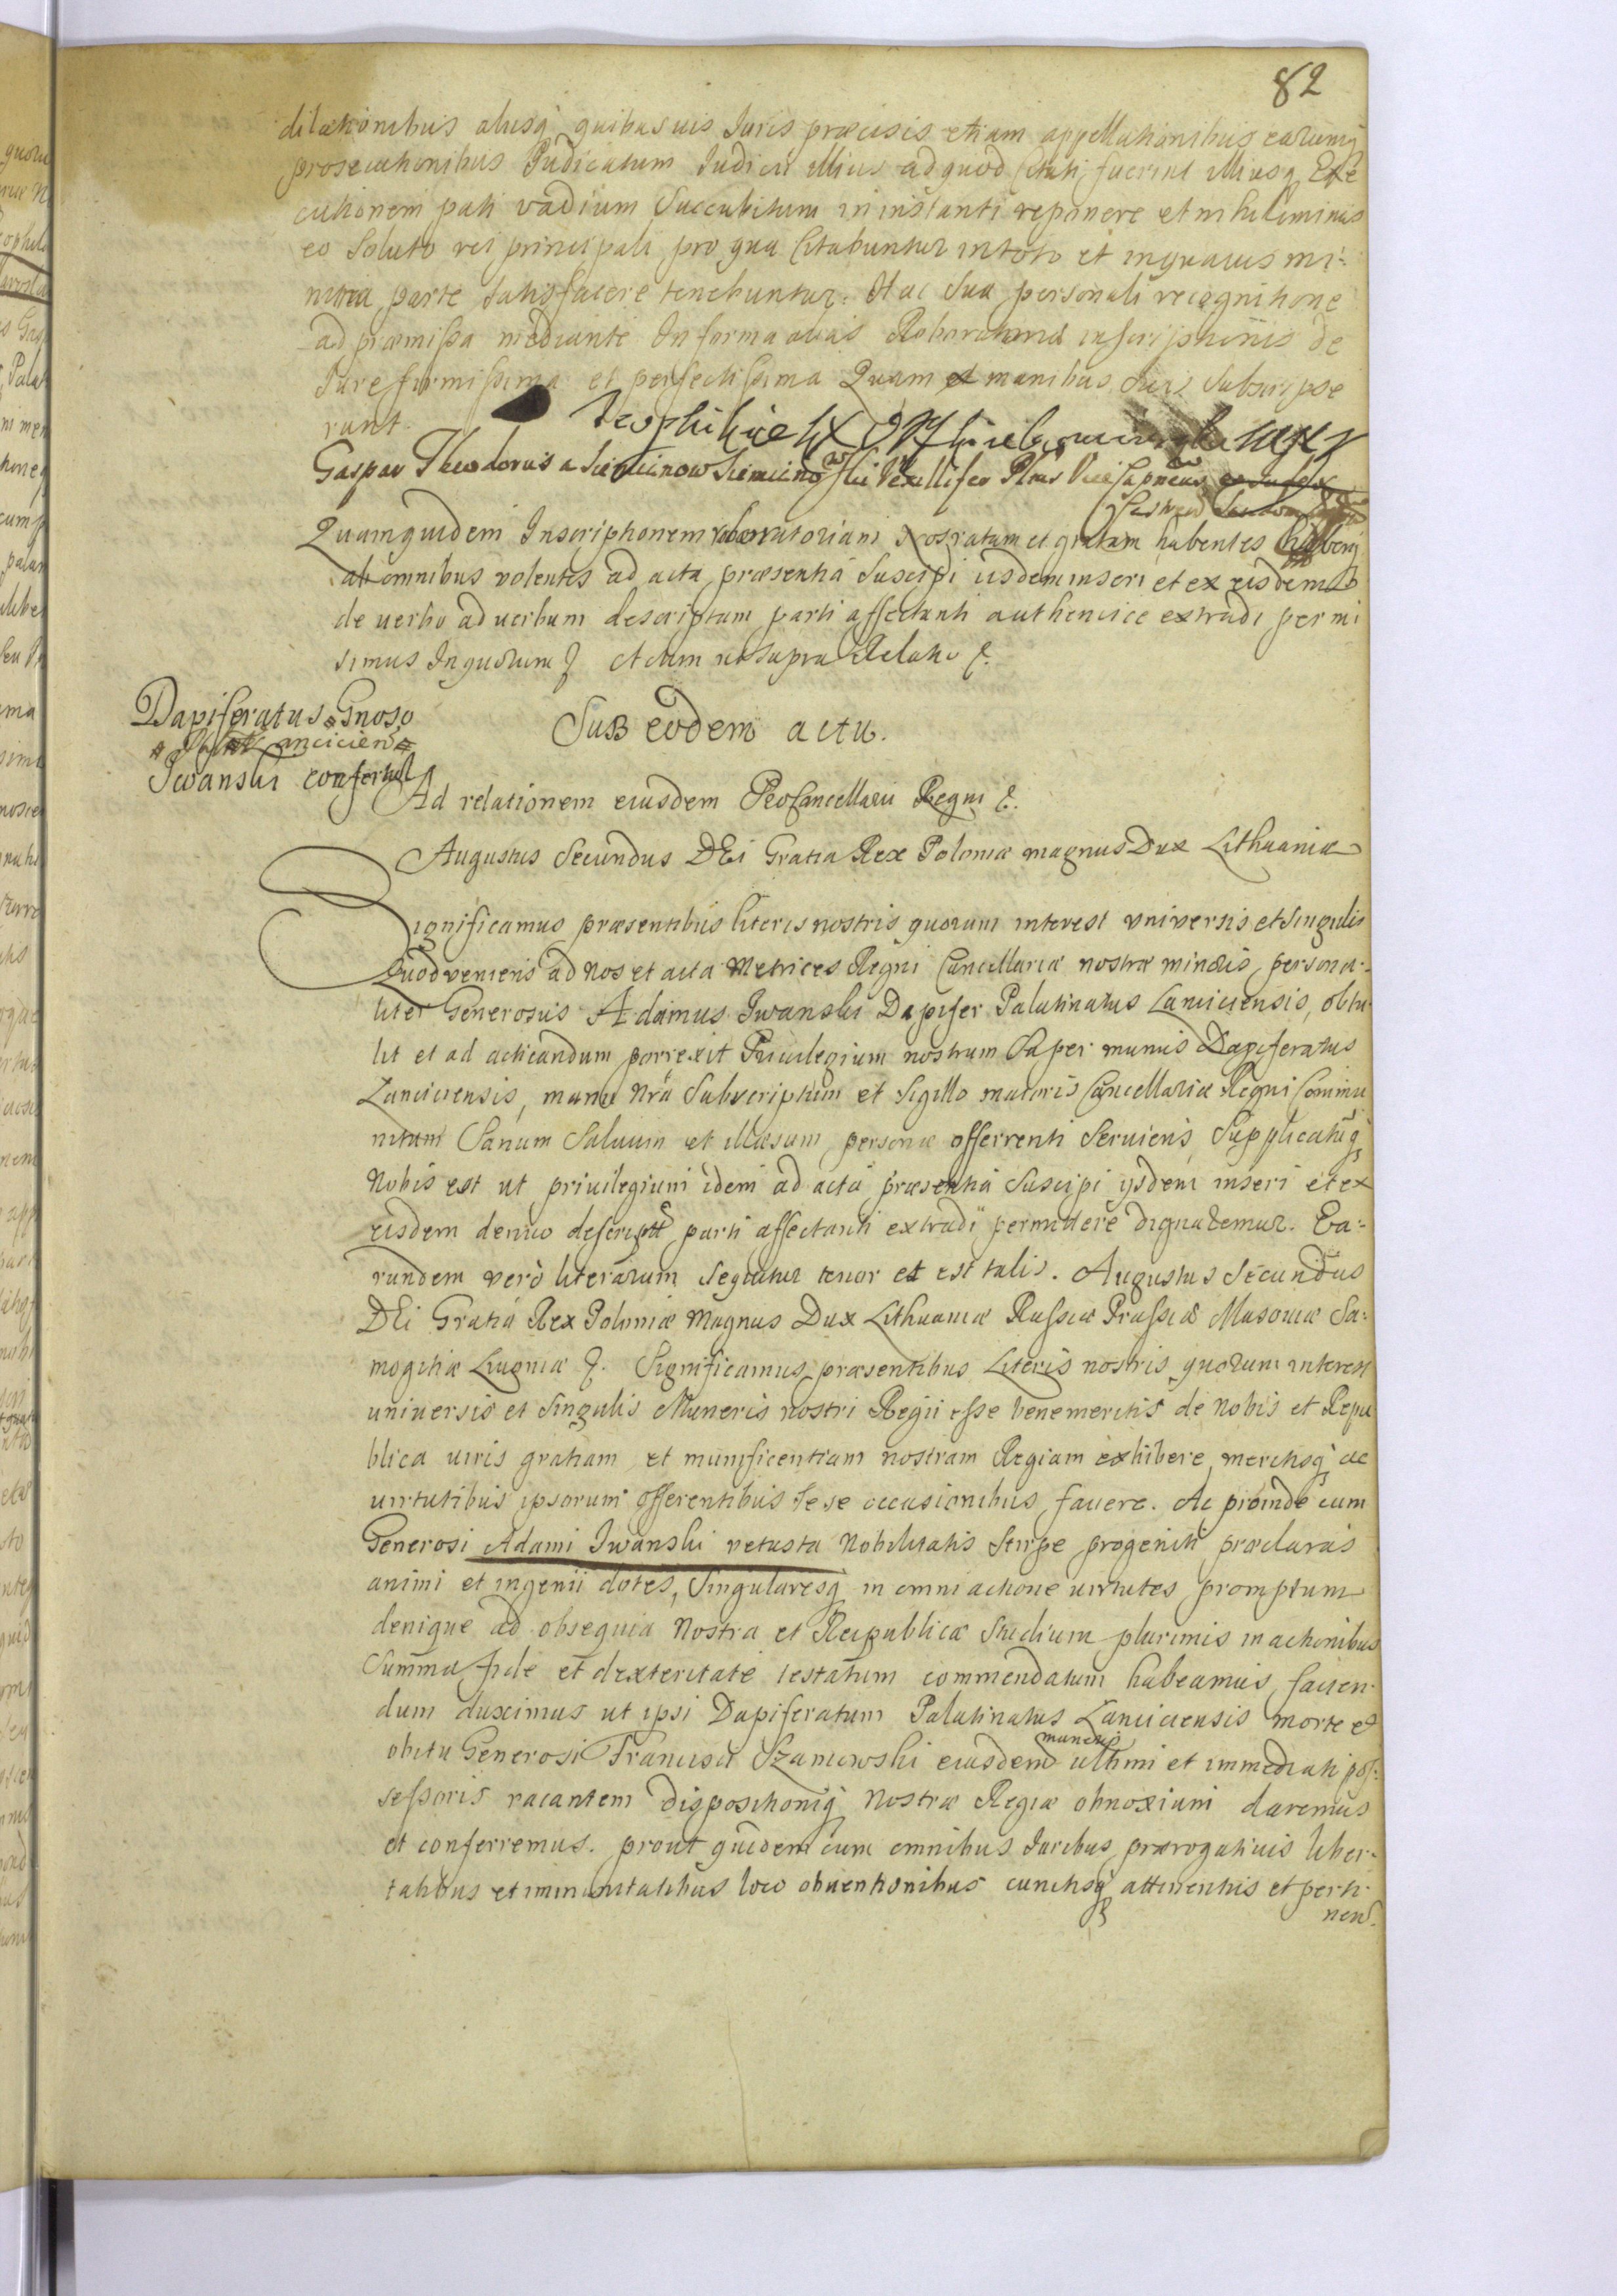 82
dilationibus alijsq quibusvis Juris præcisis etiam appellationibus earumq
prosecutionibus Judicatum Judicii illius ad quod Citati fuerint illiusq Exe
cutionem pati vadium Succubitum in instanti reponere et nihilominus
eo Soluto rei principali pro qua Citabuntur in toto et in quavis mi:
nima parte satisfacere tenebuntur. Hac sua personali recognitione
ad præmissa mediante In forma
Jure firmissima et perfectissima Quam et manibus suis Subscripse
runt.
Gaspar Theodorus a Siemuci
Quamquidem Inscriptionem roboratoriam Nos ratam et gratam habentes
ab omnibus volentes ad acta præsentia Suscipi iisdem inseri et ex eisdem
de verbo ad verbum descriptam parti affectanti authentice extradi permi
simus In quorum & Actum ut supra Relatio &.
Dapiferatus Gnoso
Iwanski confertur
Sub eodem actu.
Ad relationem eiusdem ProCancellarii Regni &.
Augustus Secundus DEi Gratia Rex Poloniæ magnus Dux Lithuaniæ
Significamus præsentibus literis nostris quorum interest universis et singulis
Quod veniens ad Nos et acta Metrices Regni Cancellariæ nostræ minoris persona:
liter Generosus Adamus Iwanski Dapifer Palatinatus Lanciciensis, obtu
lit et ad acticandum porrexit Privilegium nostrum Super munus Dapiferatus
Lanciciensis, manu Nrâ Subscriptum et Sigillo maioris Cancellariæ Regni Commu
nitum Sanum Salvum et illæsum personæ offerrenti Serviens, Supplicatuq
Nobis est ut privilegium idem ad acta præsentia Suscipi ijsdem inseri et ex
eisdem denuo descript parti affectanti extradi permittere dignaremur. Ea:
rundem verò literarum sequitur tenor et est talis. Augustus Secundus
DEi Gratia Rex Poloniæ Magnus Dux Lithuaniæ Russiæ Prussiæ Masoviæ Sa:
mogitiæ &. Significamus præsentibus Literis nostris quorum interest
universis et Singulis Muneris nostri Regii esse benemeritis de Nobis et Repu
blica viris gratiam et munificentiam nostram Regiam exhibere meritisq ac
virtutibus ipsorum offerentibus sese occasionibus favere. Ac proinde cum
Generosi Adami Iwanski vetusta Nobilitatis Stirpe progeniti præclaras
animi et ingenii dotes, Singularesq in omni actione virtutes promptum
denique ad obsequia Nostra et Reipublicæ Studium plurimis in actionibus
Summa fide et dexteritate testatum commendatum habeamus, facien
dum duximus ut ipsi Dapiferatum Palatinatus Lanciciensis morte et
obitu Generosi Francisci Szaniawski eiusdem muneris ultimi et immediati pos:
sessoris vacantem dispositioniq Nostræ Regiæ obnoxium daremus
et conferremus. prout quidem cum omnibus Juribus prærogativis liber:
tatibus et immunitatibus loco obventionibus cunctisq attinentiis et perti:
nen.